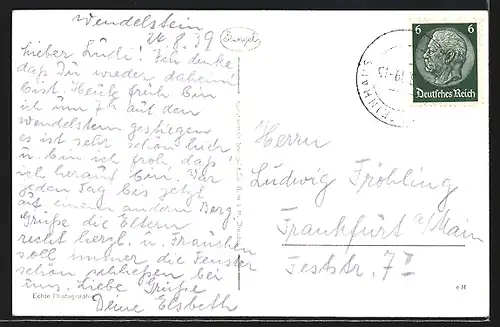 Wendelstein
24.8.39
Lieber Ludi! Ich denke
daß Du wieder daheim
bist. Heute früh bin
ich um 7h auf den
Wendelstein gestiegen
es ist sehr schön hier
u. bin ich froh daß
ich herauf bin. War
jeden Tag bis jetzt
auf einem andern Berg.
Grüße die Eltern
recht herzl. u. Frauchen
soll immer die Fenster
schön schließen bei
uns. Liebe Grüße
Deine Elsbeth
Echte Photographie
6 6
Deutsches Reich
Herrn
Ludwig Fröhling
Frankfurt a/Main
Feststr. 7 II